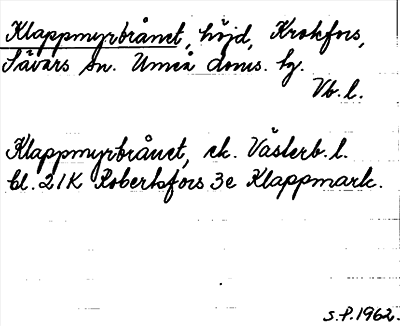 Klappmyrbrånet, höjd, Krokfors,
Sävars sn. Umeå doms. hg.
Vb. l.
Klappmyrbrånet, ek. Västerb. l.
bl. 21K Robertsfors 3e Klappmark.
S. P. 1962.